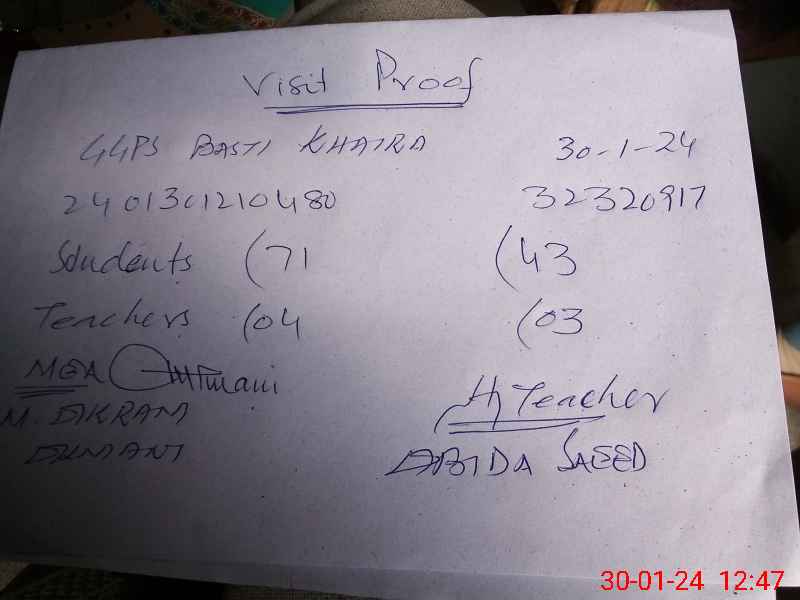 Visit Proof
GGPS BASTI KHAIRA 30-1-24
2401301210480 32320917
Students (71 (43
Teachers (04 (03
MEA
H Teacher
M. IKRAM
ABIDA SAEED
30-01-24 12:47